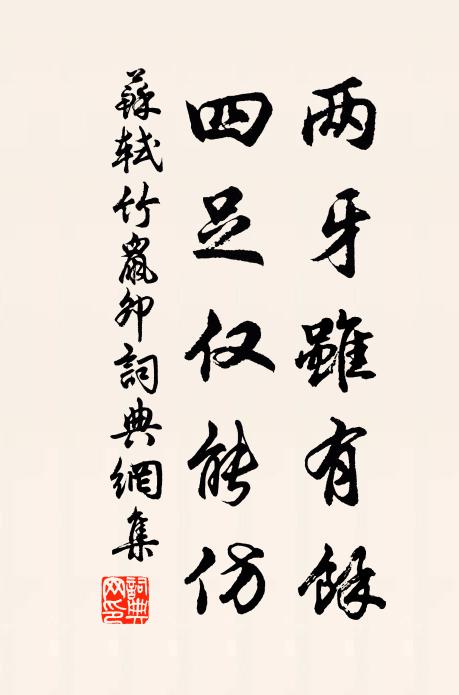 两牙雖有餘
四足仅能仿
蘇軾竹䶉卯詞典網集
詞典網印